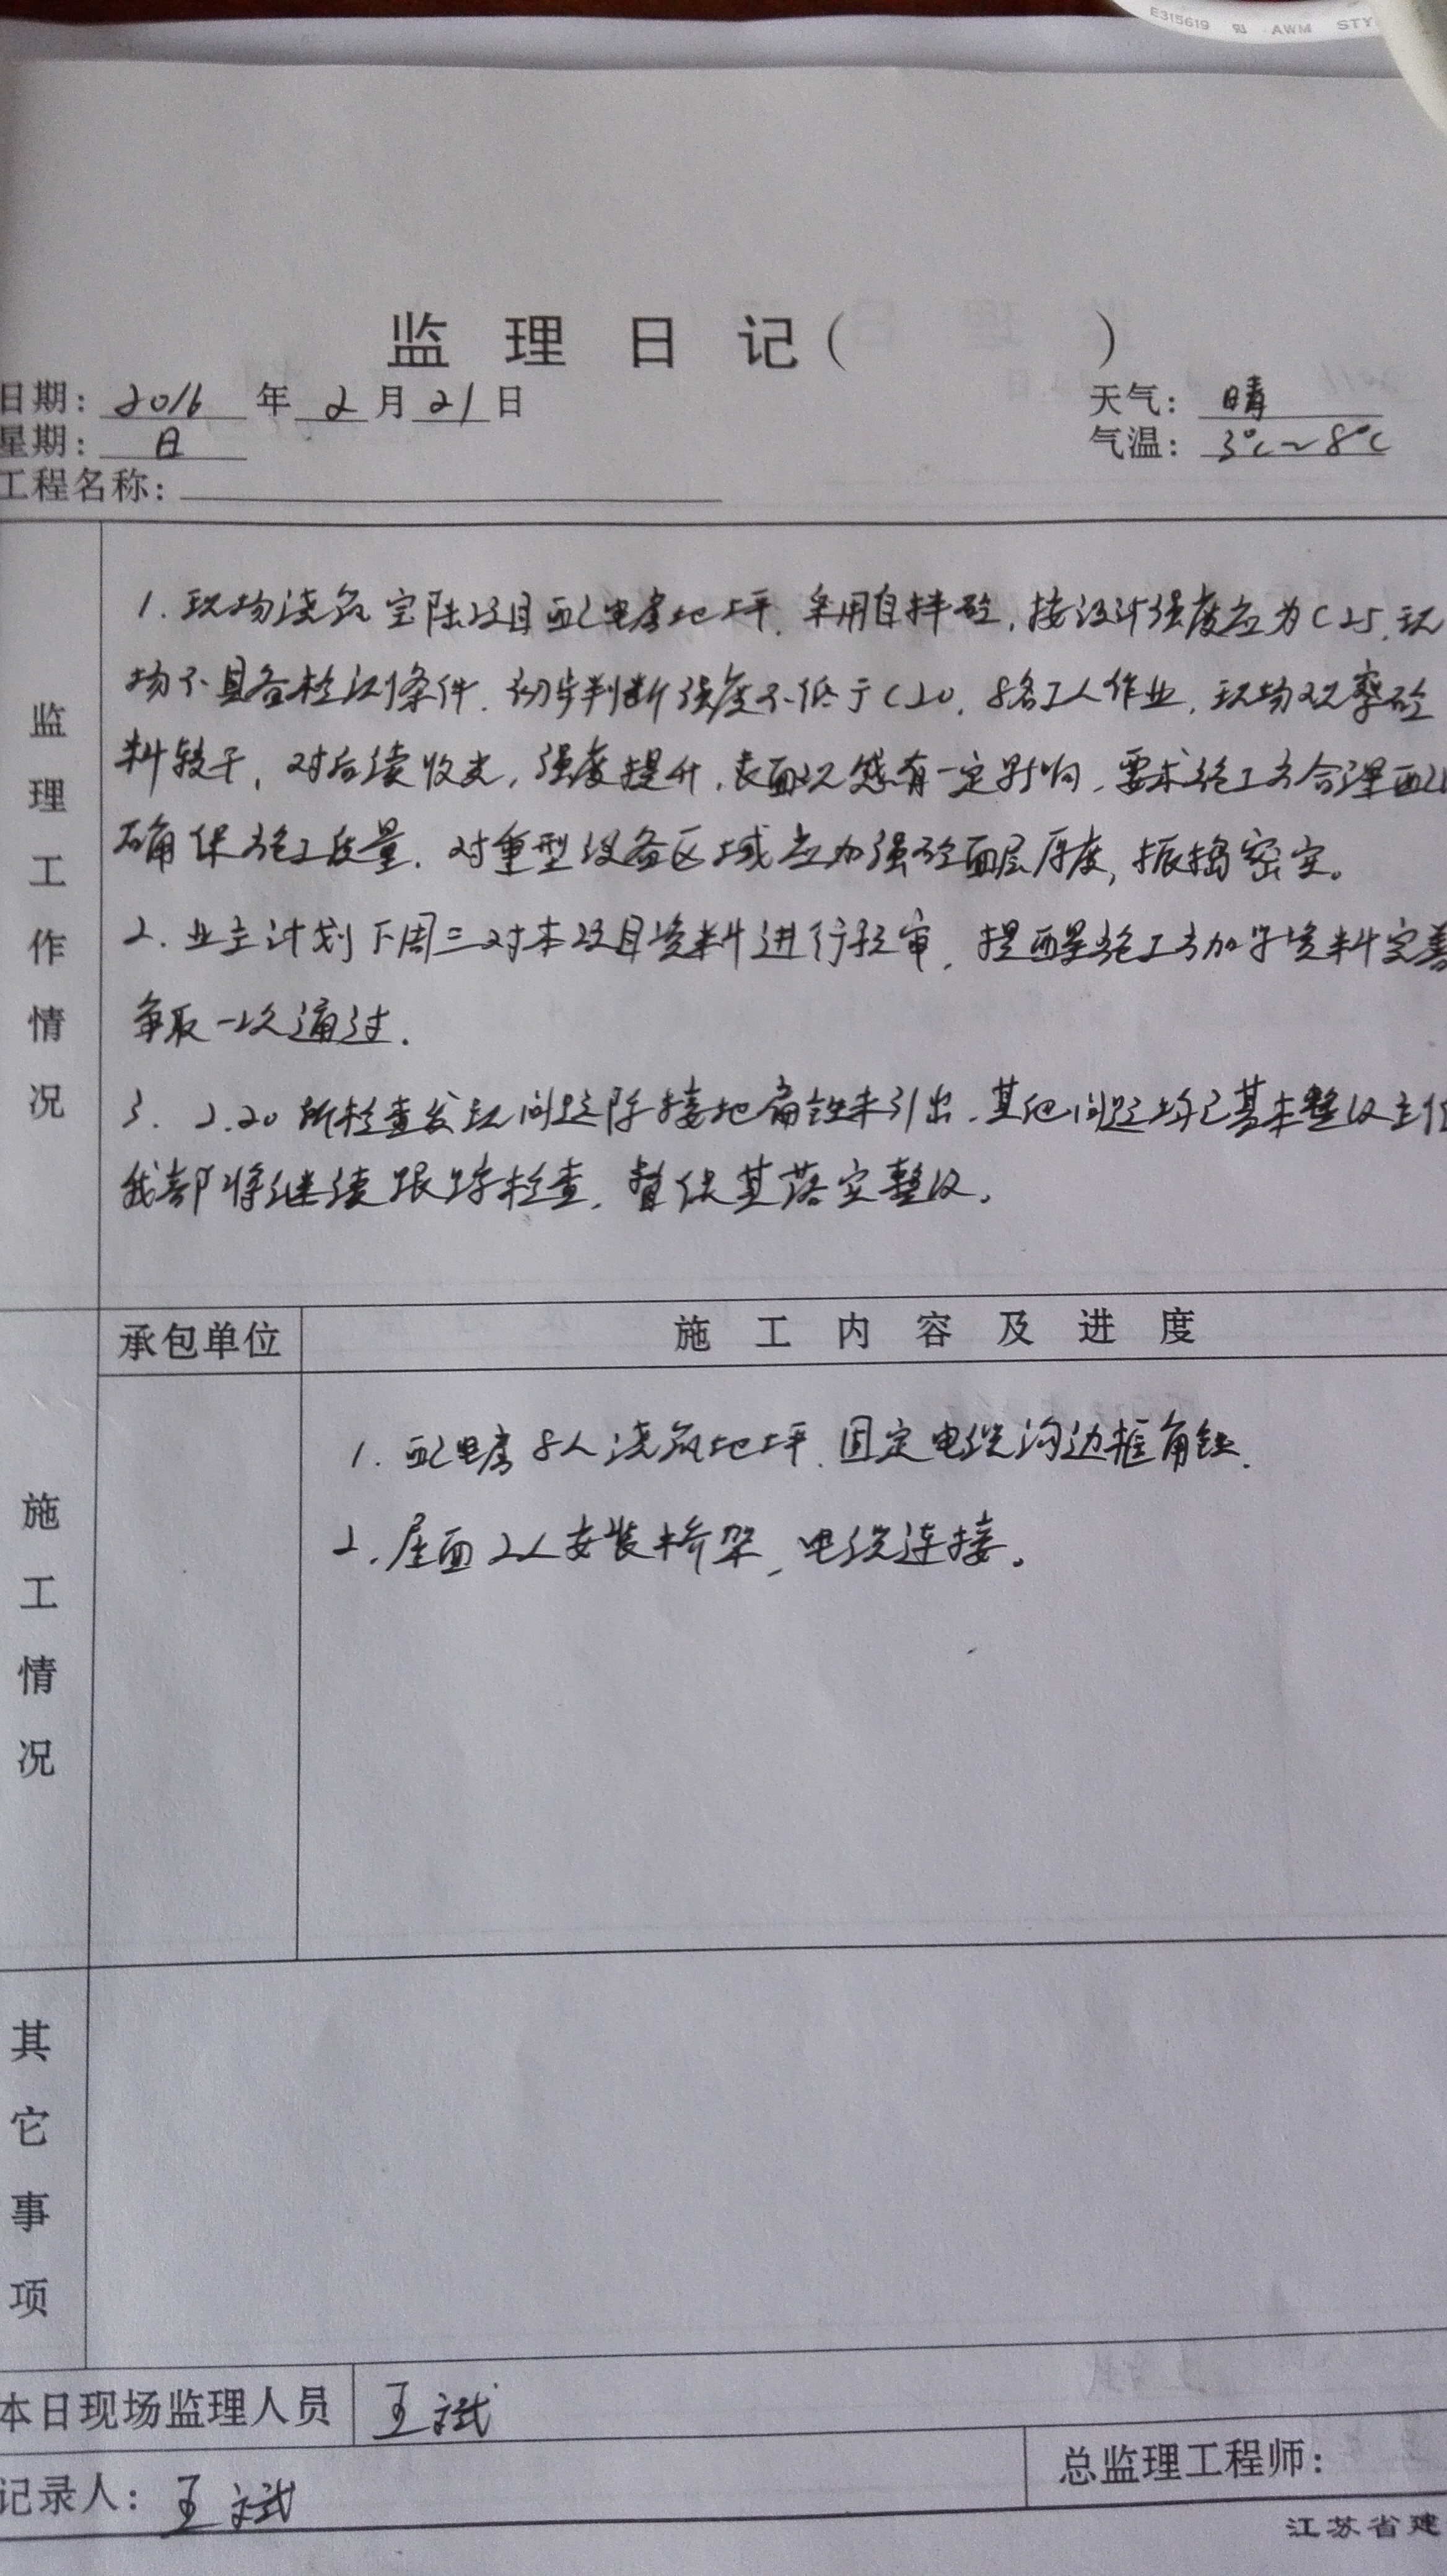 E315619 AWM STY
监理日记( )
日期: 2016 年 2 月 21 日 天气: 晴
星期: 日 气温: 3℃~8℃
工程名称:
监理工作情况
1. 现场浇筑宝陆项目配电房地坪, 采用自拌砼, 按设计强度应为C25, 现
场不具备检测条件, 初步判断强度不低于C20, 8名工人作业, 现场观察砼
料较干, 对后续收光, 强度提升, 表面观感有一定影响, 要求施工方合理配
确保施工质量, 对重型设备区域应加强砼面层厚度, 振捣密实。
2. 业主计划下周三对本项目资料进行预审, 提醒施工方加快资料完善
争取一次通过.
3. 2.20 所检查发现问题除接地扁铁未引出, 其他问题均已基本整改
我部将继续跟踪检查, 督促其落实整改。
承包单位 施工内容及进度
施工情况
1. 配电房 8人浇筑地坪, 固定电缆沟边框角铁.
2. 屋面 2人安装桥架, 电缆连接。
其它事项
本日现场监理人员 王斌
记录人: 王斌 总监理工程师:
江苏省建